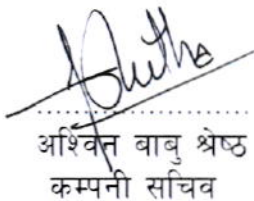 अश्विन बाबु श्रेष्ठ
कम्पनी सचिव